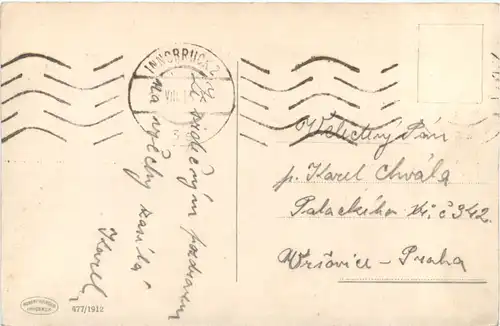 INNSBRUCK 2
VIII
Se srdečným pozdravem
na všechny
Karel
Velectěný Pán
p. Karel Chvála
Palackého tř. č 342.
Vršovice - Praha
477/1912